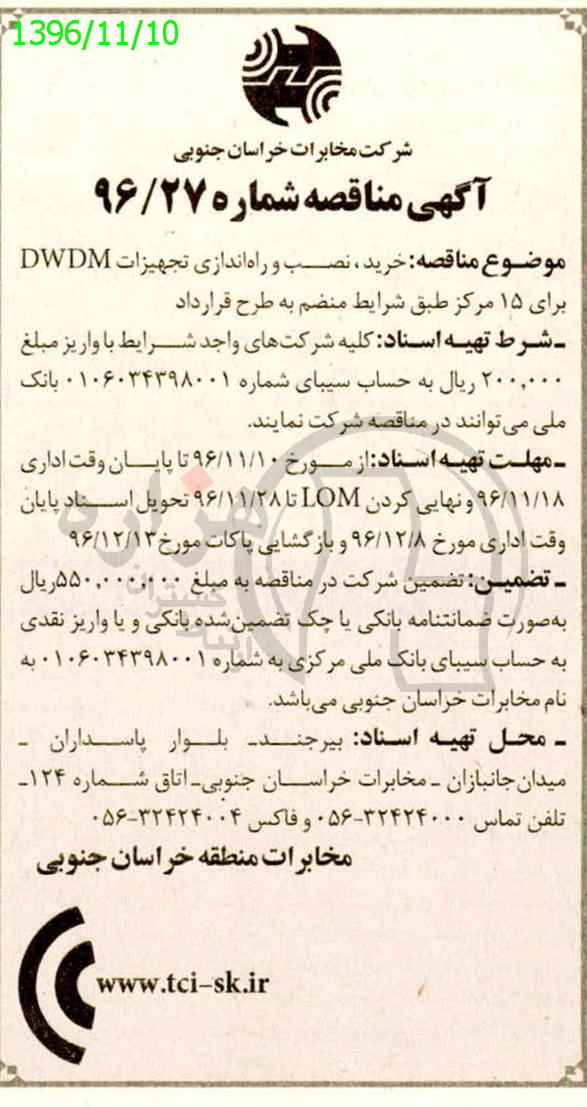 1396/11/10
شرکت مخابرات خراسان جنوبی
آگهی مناقصه شماره ۹۶/۲۷
موضوع مناقصه: خرید، نصب و راه‌اندازی تجهیزات DWDM
برای ۱۵ مرکز طبق شرایط منضم به طرح قرارداد
ـ شرط تهیه اسناد: کلیه شرکت‌های واجد شرایط با واریز مبلغ
۲۰۰,۰۰۰ ریال به حساب سیبای شماره ۰۱۰۶۰۳۴۳۹۸۰۰۱ بانک
ملی می‌توانند در مناقصه شرکت نمایند.
ـ مهلت تهیه اسناد: از مورخ ۹۶/۱۱/۱۰ تا پایان وقت اداری
۹۶/۱۱/۱۸ و نهایی کردن LOM تا ۹۶/۱۱/۲۸ تحویل اسناد پایان
وقت اداری مورخ ۹۶/۱۲/۸ و بازگشایی پاکات مورخ ۹۶/۱۲/۱۳
ـ تضمین: تضمین شرکت در مناقصه به مبلغ ۵۵۰,۰۰۰,۰۰۰ ریال
به‌صورت ضمانتنامه بانکی یا چک تضمین‌شده بانکی و یا واریز نقدی
به حساب سیبای بانک ملی مرکزی به شماره ۰۱۰۶۰۳۴۳۹۸۰۰۱ به
نام مخابرات خراسان جنوبی می‌باشد.
ـ محل تهیه اسناد: بیرجند ـ بلوار پاسداران ـ
میدان جانبازان ـ مخابرات خراسان جنوبی ـ اتاق شماره ۱۲۴ ـ
تلفن تماس ۳۲۴۲۴۰۰۰-۰۵۶ و فاکس ۳۲۴۲۴۰۰۴-۰۵۶
مخابرات منطقه خراسان جنوبی
www.tci-sk.ir
هزاره